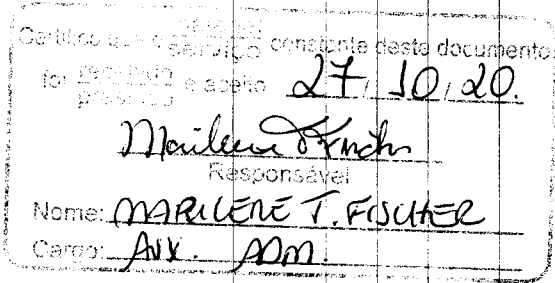 material
Certifico que o serviço constante deste documento
foi recebido e aceito 27/10/20.
prestado
Marilene T. Fischer
Responsável
Nome: MARILENE T. FISCHER
Cargo: AUX. ADM.